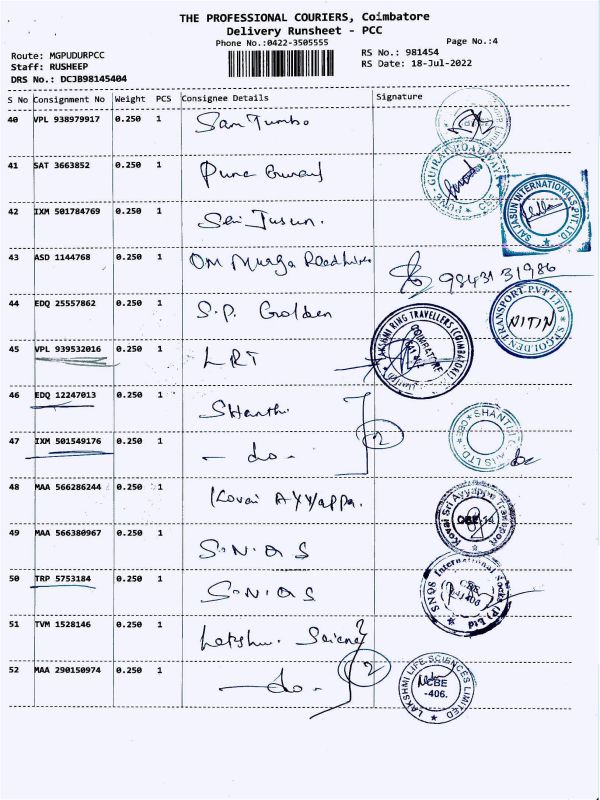 THE PROFESSIONAL COURIERS, Coimbatore
Delivery Runsheet - PCC
Phone No.:0422-3505555
Page No.:4
Route: MGPUDURPCC
RS No.: 981454
Staff: RUSHEEP
RS Date: 18-Jul-2022
DRS No.: DCJB98145404
S No Consignment No Weight PCS Consignee Details Signature
40 VPL 938979917 0.250 1 Sam Turbo
41 SAT 3663852 0.250 1
PUNE GUJRAT ROADWAYS
42 IXM 501784769 0.250 1 Sai Jasun.
SAI JASUN INTERNATIONALS PVT. LTD.
43 ASD 1144768 0.250 1 OM Muruga Roadlines
98431 31986
44 EDQ 25557862 0.250 1 S.P. Golden
S.P.GOLDEN TRANSPORT PVT LTD
NITIN
45 VPL 939532016 0.250 1 LRT
LAKSHMI RING TRAVELLERS (COIMBATORE)
COIMBATORE
46 EDQ 12247013 0.250 1 Shanthi
2
SHANTHI
LTD. CBE
47 IXM 501549176 0.250 1 - do -
48 MAA 566286244 0.250 1 Kovai AYYappa.
Kovai Sri Ayyappa Transport
CBE-14
49 MAA 566380967 0.250 1 S.N.Q S
50 TRP 5753184 0.250 1 S.N.Q S
SNQS International Socks (P) Ltd
51 TVM 1528146 0.250 1 Lakshmi Science
2
52 MAA 290150974 0.250 1 - do -
LAKSHMI LIFE SCIENCES LIMITED
CBE
-406.